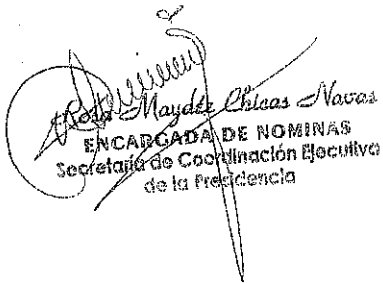 Rosa Maydee Chicas Navas
ENCARGADA DE NOMINAS
Secretaria de Coordinación Ejecutiva
de la Presidencia